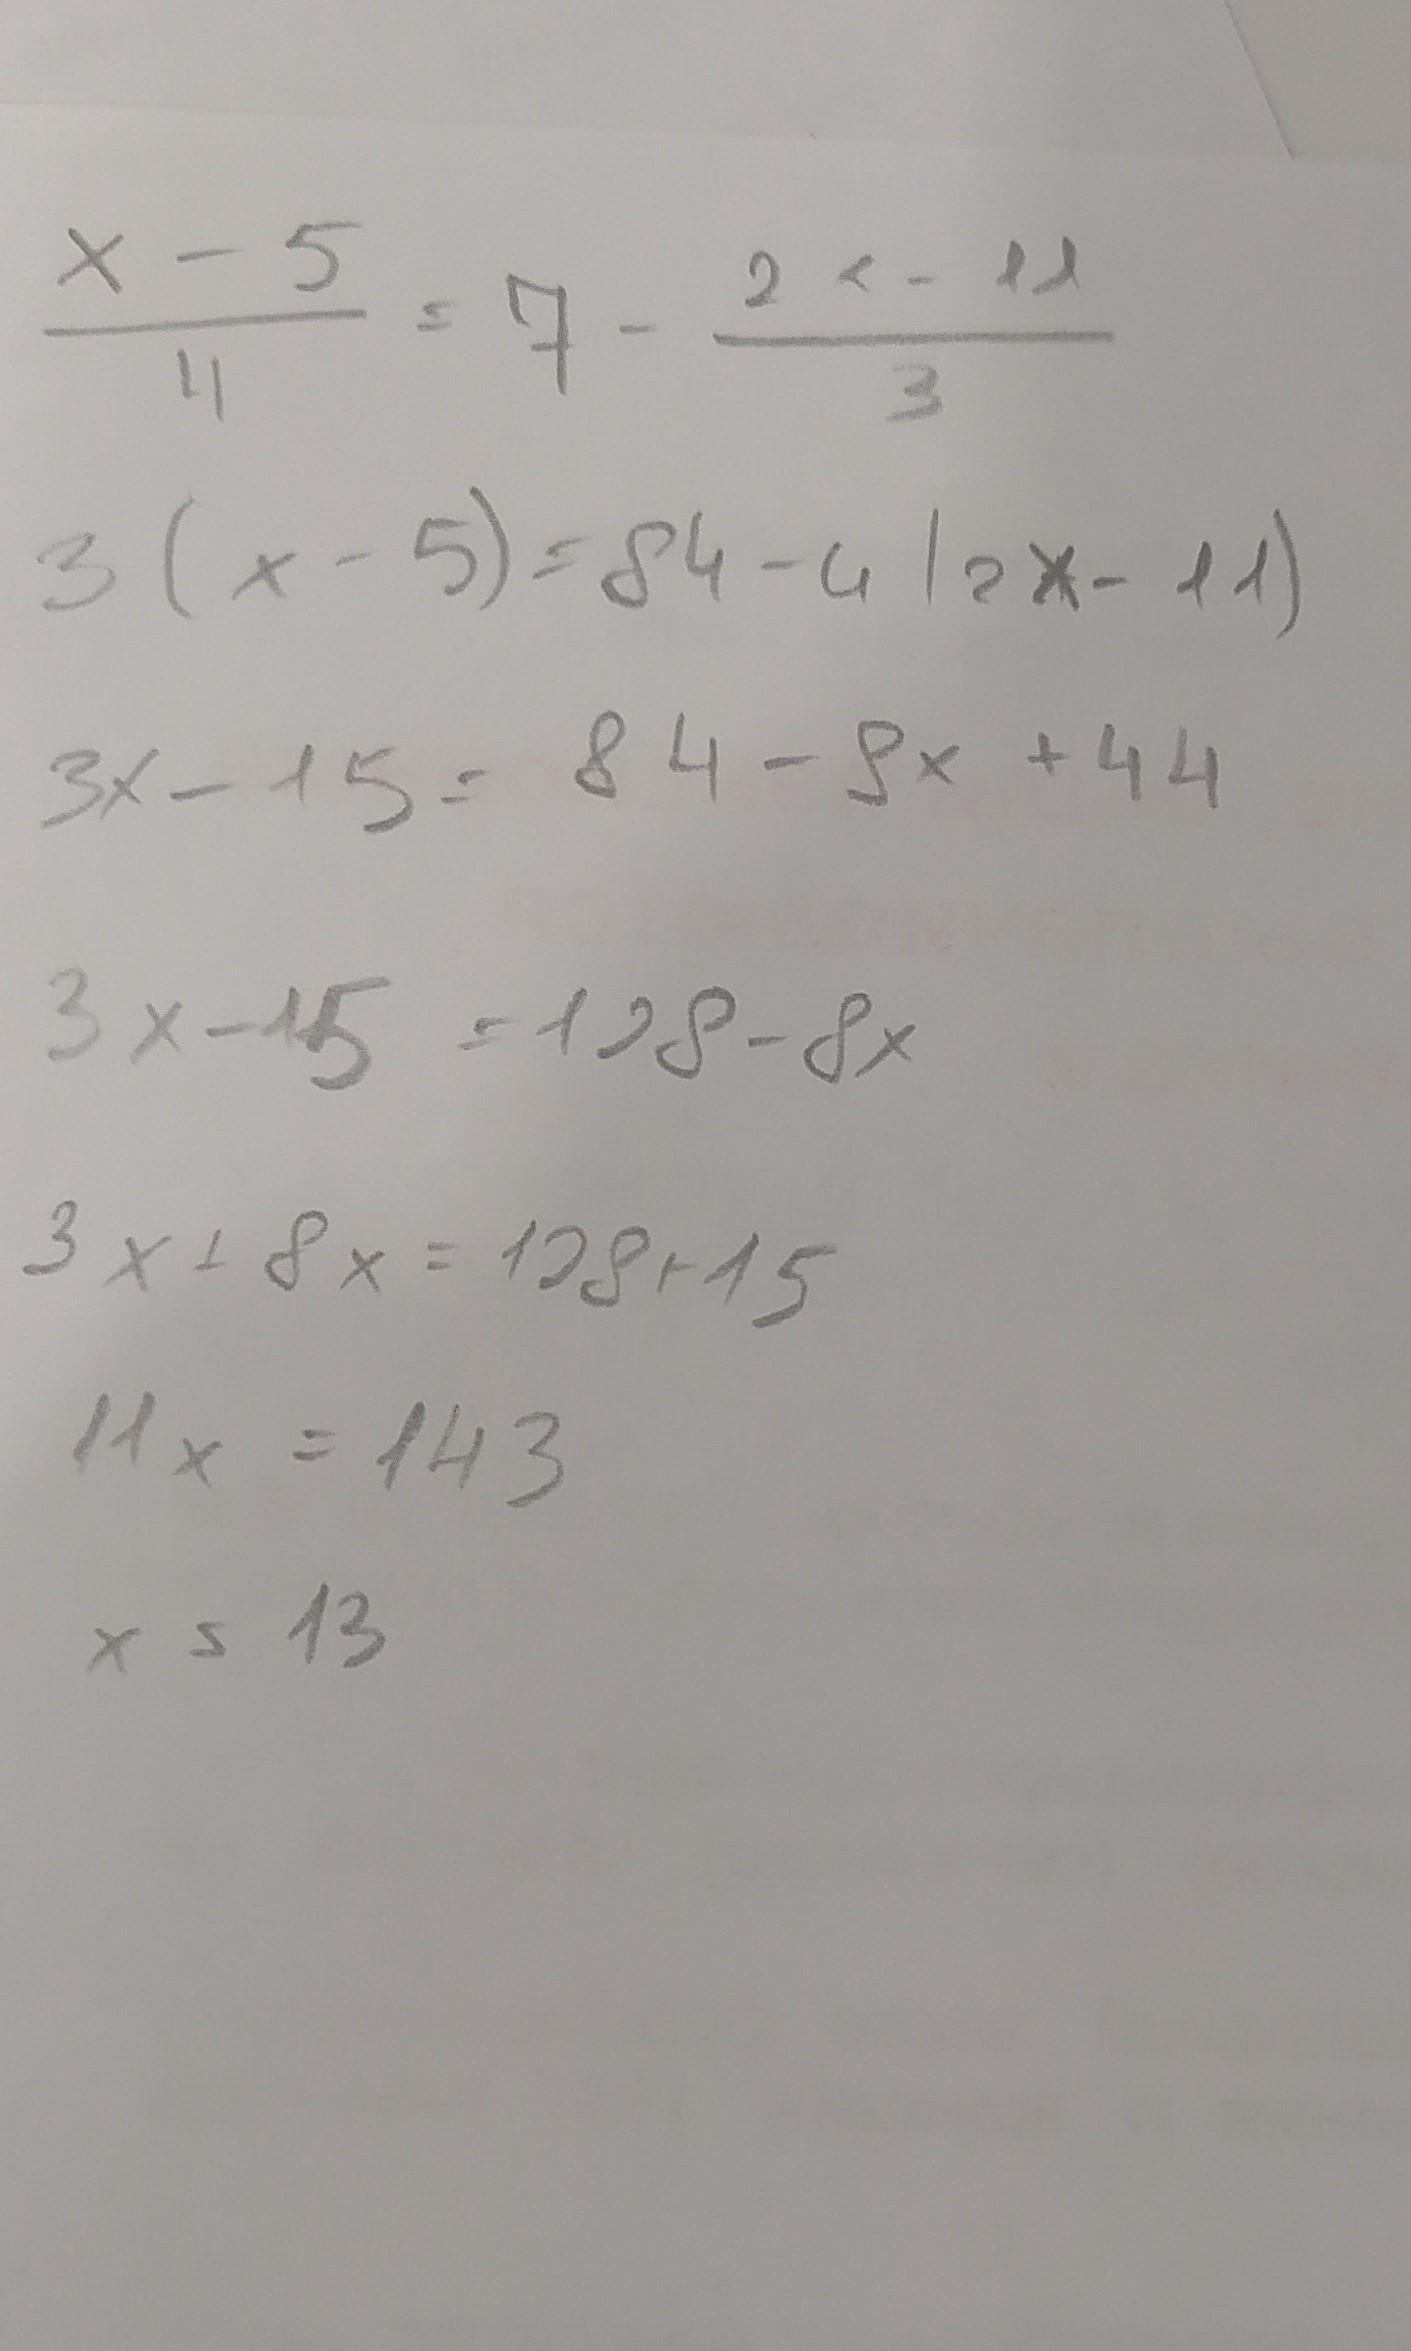 x - 5 / 4 = 7 - 2x - 11 / 3
3(x - 5) = 84 - 4(2x - 11)
3x - 15 = 84 - 8x + 44
3x - 15 = 128 - 8x
3x + 8x = 128 + 15
11x = 143
x = 13